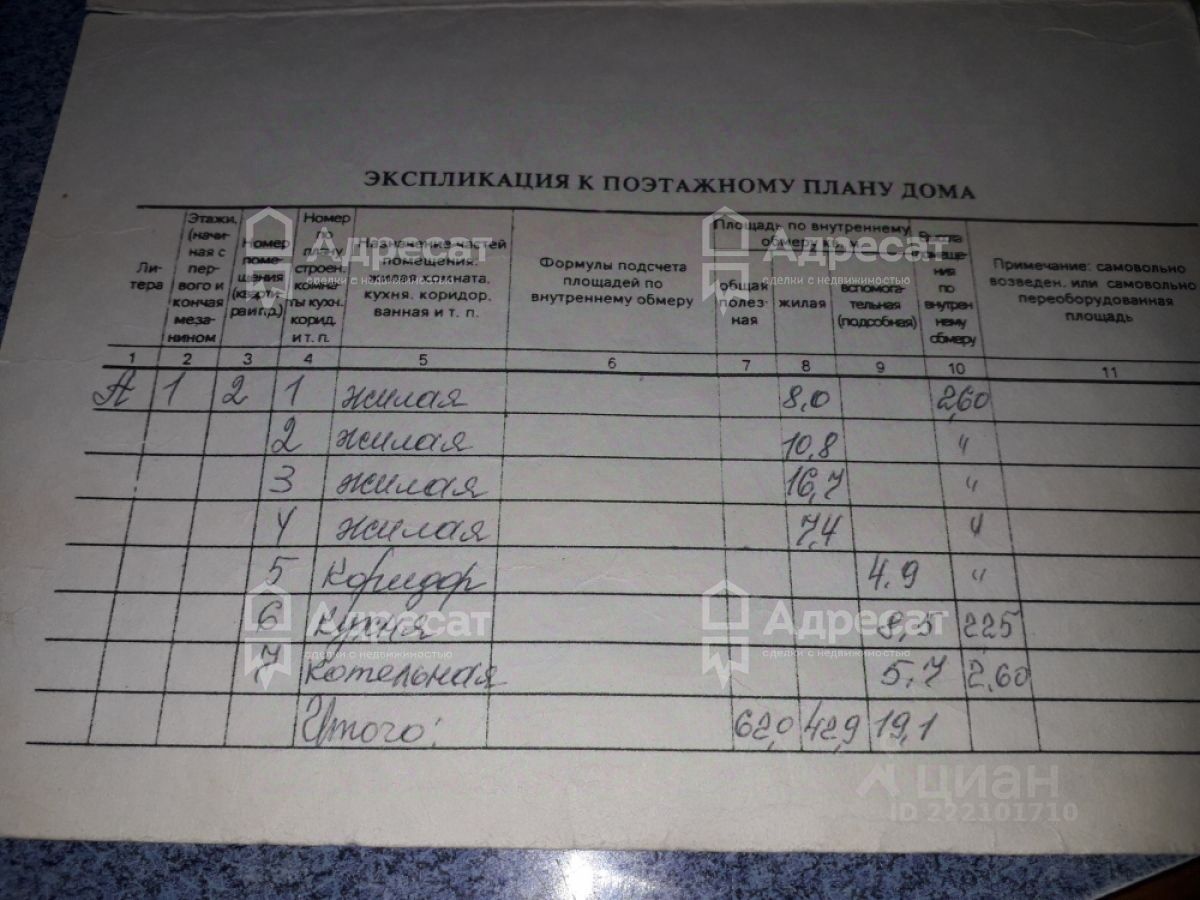 ЭКСПЛИКАЦИЯ К ПОЭТАЖНОМУ ПЛАНУ ДОМА
Ли-
тера
Этажи,
(начи-
ная с
пер-
вого и
кончая
меза-
нином
Номер
поме-
щения
(кварти-
ра и т.д.)
Номер
по
плану
строен.
комна-
ты кухн.
корид.
и т. п.
Назначение частей
помещения:
жилая комната.
кухня. коридор.
ванная и т. п.
Формулы подсчета
площадей по
внутреннему обмеру
Площадь по внутреннему
обмеру кв. м.
общая
полез-
ная
жилая
вспомога-
тельная
(подробная)
Высота
помеще-
ния
по
внутрен
нему
обмеру
Примечание: самовольно
возведен. или самовольно
переоборудованная
площадь
1 2 3 4 5 6 7 8 9 10 11
А 1 2 1 жилая 8,0 2,60
2 жилая 10,8 "
3 жилая 16,7 "
4 жилая 7,4 "
5 коридор 4.9 "
6 кухня 8,5 2,25
7 котельная 5.7 2,60
Итого: 62,0 42,9 19,1
Адресат
сделки с недвижимостью
Адресат
сделки с недвижимостью
Адресат
сделки с недвижимостью
Адресат
сделки с недвижимостью
циан
ID 222101710